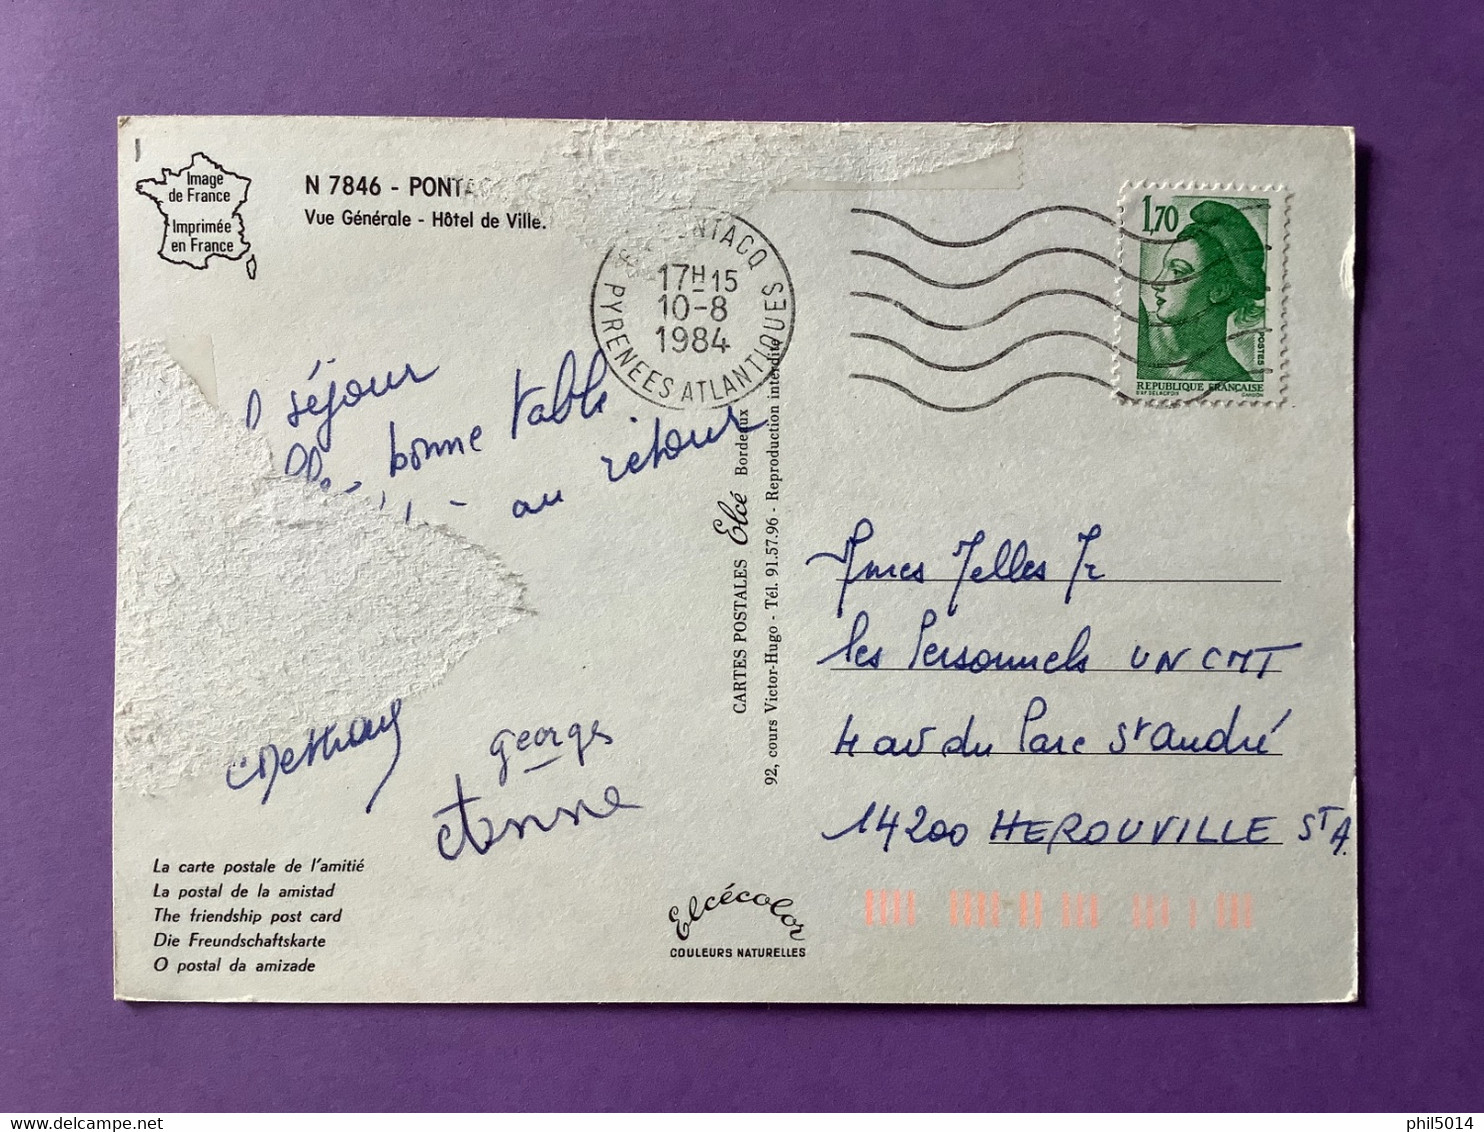 Image
de France
Imprimée
en France
N 7846 - PONTAC
Vue Générale - Hôtel de Ville.
PONTACQ
17H15
10-8
1984
PYRENEES ATLANTIQUES
1,70
POSTES
REPUBLIQUE FRANÇAISE
séjour
bonne table
au retour
georges
et Anne
CARTES POSTALES Elcé Bordeaux
92, cours Victor-Hugo - Tél. 91.57.96 - Reproduction interdite
Mmes Melles Mr
les Personnels UNCMT
4 av du Parc St André
14200 HEROUVILLE ST A.
La carte postale de l'amitié
La postal de la amistad
The friendship post card
Die Freundschaftskarte
O postal da amizade
Elcécolor
COULEURS NATURELLES
phil5014